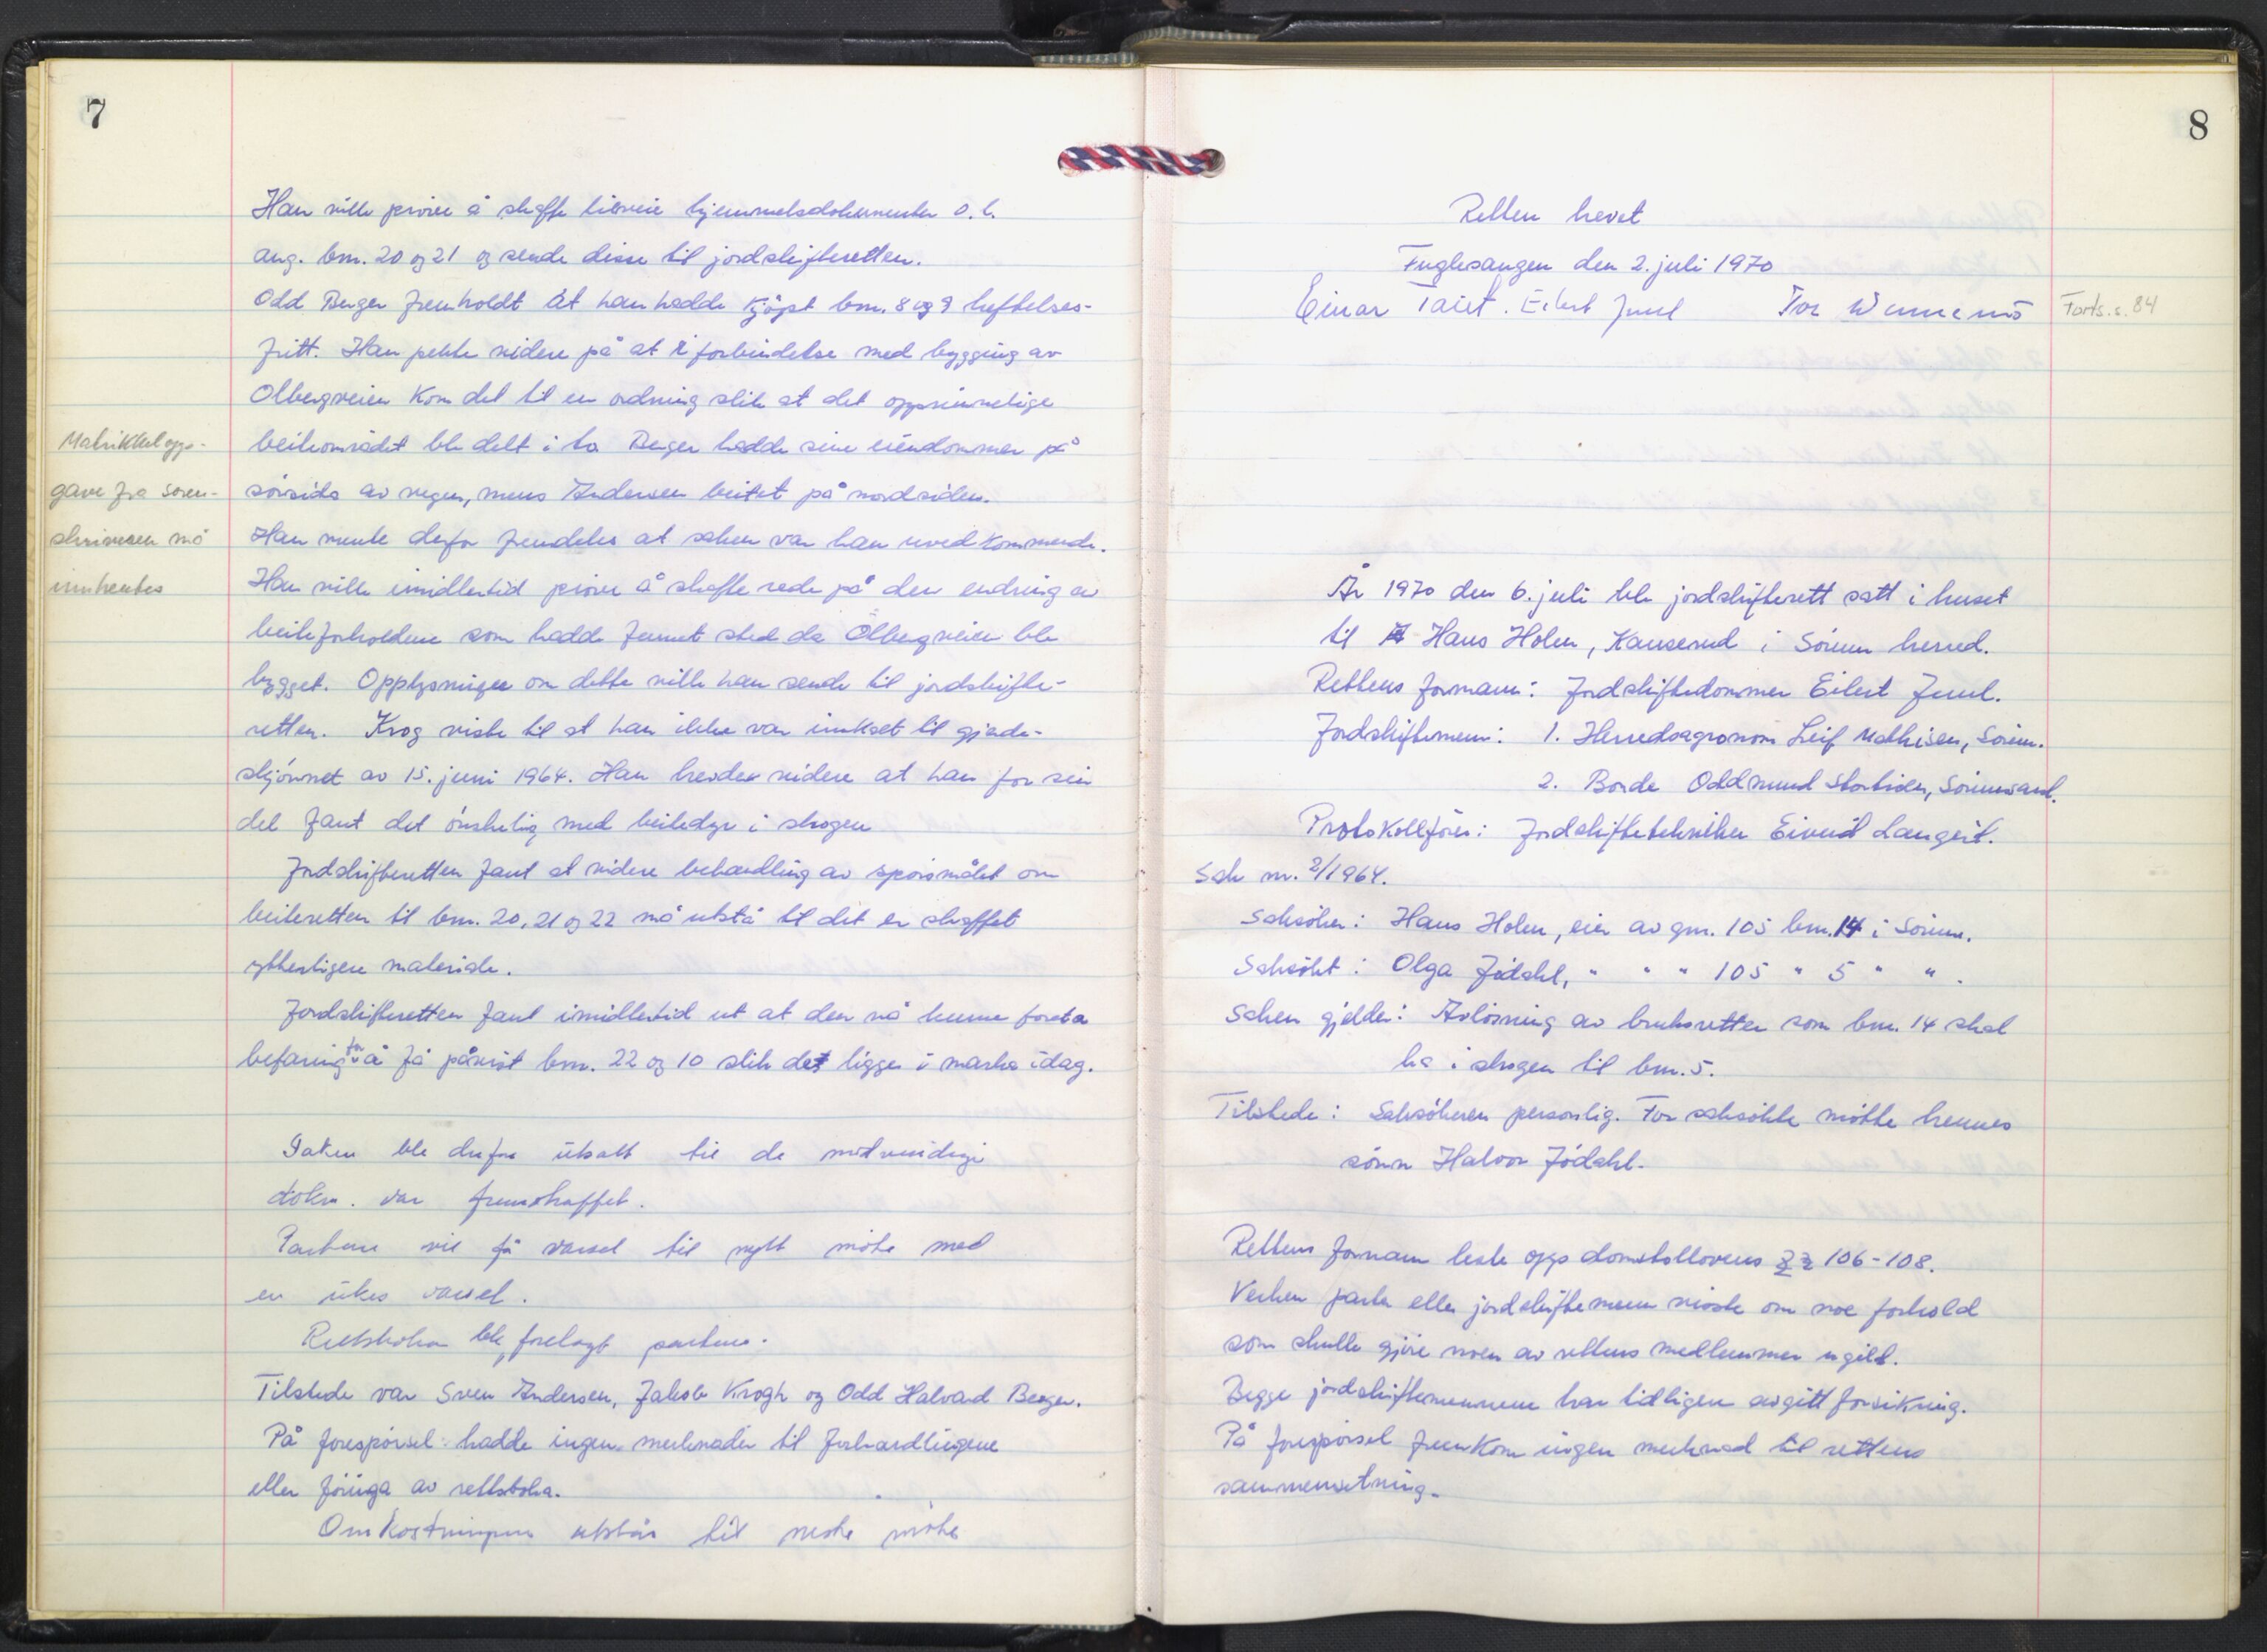 7
Han ville prøve å skaffe tilveie hjemmelsdokumenter o.l.
ang. bnr. 20 og 21 og sende disse til jordskifteretten.
Odd Berger fremholdt at han hadde kjøpt bnr. 8 og 9 heftelses-
fritt. Han pekte videre på at i forbindelse med bygging av
Olbergveien kom det til en ordning slik at det opprinnelige
beiteområdet ble delt i to. Berger hadde sine eiendommer på
sørsida av vegen, mens Andersen beitet på nordsiden.
Han mente derfor fremdeles at saken var han uvedkommende.
Han ville imidlertid prøve å skaffe rede på den endring av
beiteforholdene som hadde funnet sted da Olbergveien ble
bygget. Opplysninger om dette ville han sende til jordskifte-
retten. Krog viste til at han ikke var innkalt til gjerde-
skjønnet av 15. juni 1964. Han hevdet videre at han for sin
del fant det ønskelig med beitedyr i skogen
Jordskifteretten fant at videre behandling av spørsmålet om
beiteretten til bnr. 20, 21 og 22 må utstå til det er skaffet
ytterligere materiale.
Jordskifteretten fant imidlertid ut at den nå kunne foreta
befaring for å få påvist bnr. 22 og 10 slik det ligger i marka idag.
Saken ble derfor utsatt til de nødvendige
dokm. var fremskaffet.
Partene vil få varsel til nytt møte med
en ukes varsel.
Rettsboken ble forelagt partene.
Tilstede var Sven Andersen, Jakob Krogh og Odd Halvard Berger.
På forespørsel hadde ingen merknader til forhandlingene
eller føringa av rettsboka.
Omkostningene utstår til neste møte
Matrikkelopp-
gave fra soren-
skriveren må
innhentes
8
Retten hevet
Fuglesangen den 2. juli 1970
Einar Tait. Eilert Juul Tor
Forts. s. 84
År 1970 den 6. juli ble jordskifterett satt i huset
til Hans Holen, Kauserud i Sørum herred.
Rettens formann: Jordskiftedommer Eilert Juul.
Jordskiftemenn: 1. Herredsagronom Leif Mathisen, Sørum.
2. Bonde Oddmund Stortiden, Sørumsand.
Protokollfører: Jordskiftetekniker Eivind Langset.
Sak nr. 2/1964.
Saksøker: Hans Holen, eier av gnr. 105 bnr. 14 i Sørum.
Saksøkt: Olga Jødahl, " " " 105 " 5 " ".
Saken gjelder: Avløsning av bruksretter som bnr. 14 skal
ha i skogen til bnr. 5.
Tilstede: Saksøkeren personlig. For saksøkte møtte hennes
sønn Halvor Jødahl.
Rettens formann leste opp domstollovens §§ 106-108.
Verken parter eller jordskiftemenn visste om noe forhold
som skulle gjøre noen av rettens medlemmer ugild.
Begge jordskiftemennene har tidligere avgitt forsikring.
På forespørsel fremkom ingen merknad til rettens
sammensetning.